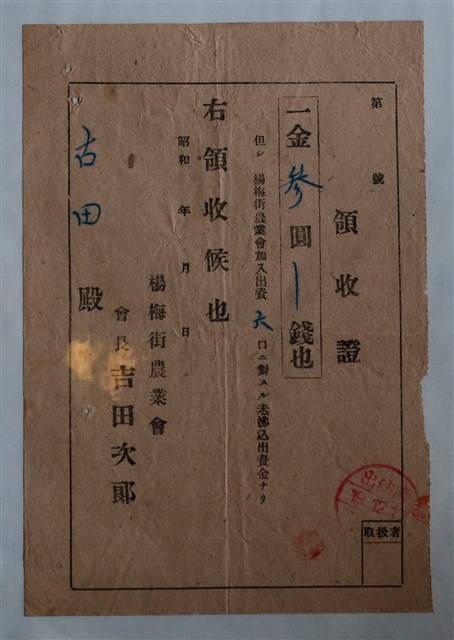 第　號
領收證
一金參圓｜錢也
但シ 楊梅街農業會加入出資六口ニ對スル未拂込出資金ナリ
右領收候也
昭和　年　月　日
楊梅街農業會
會長 吉田次郞
古田 殿
取扱者